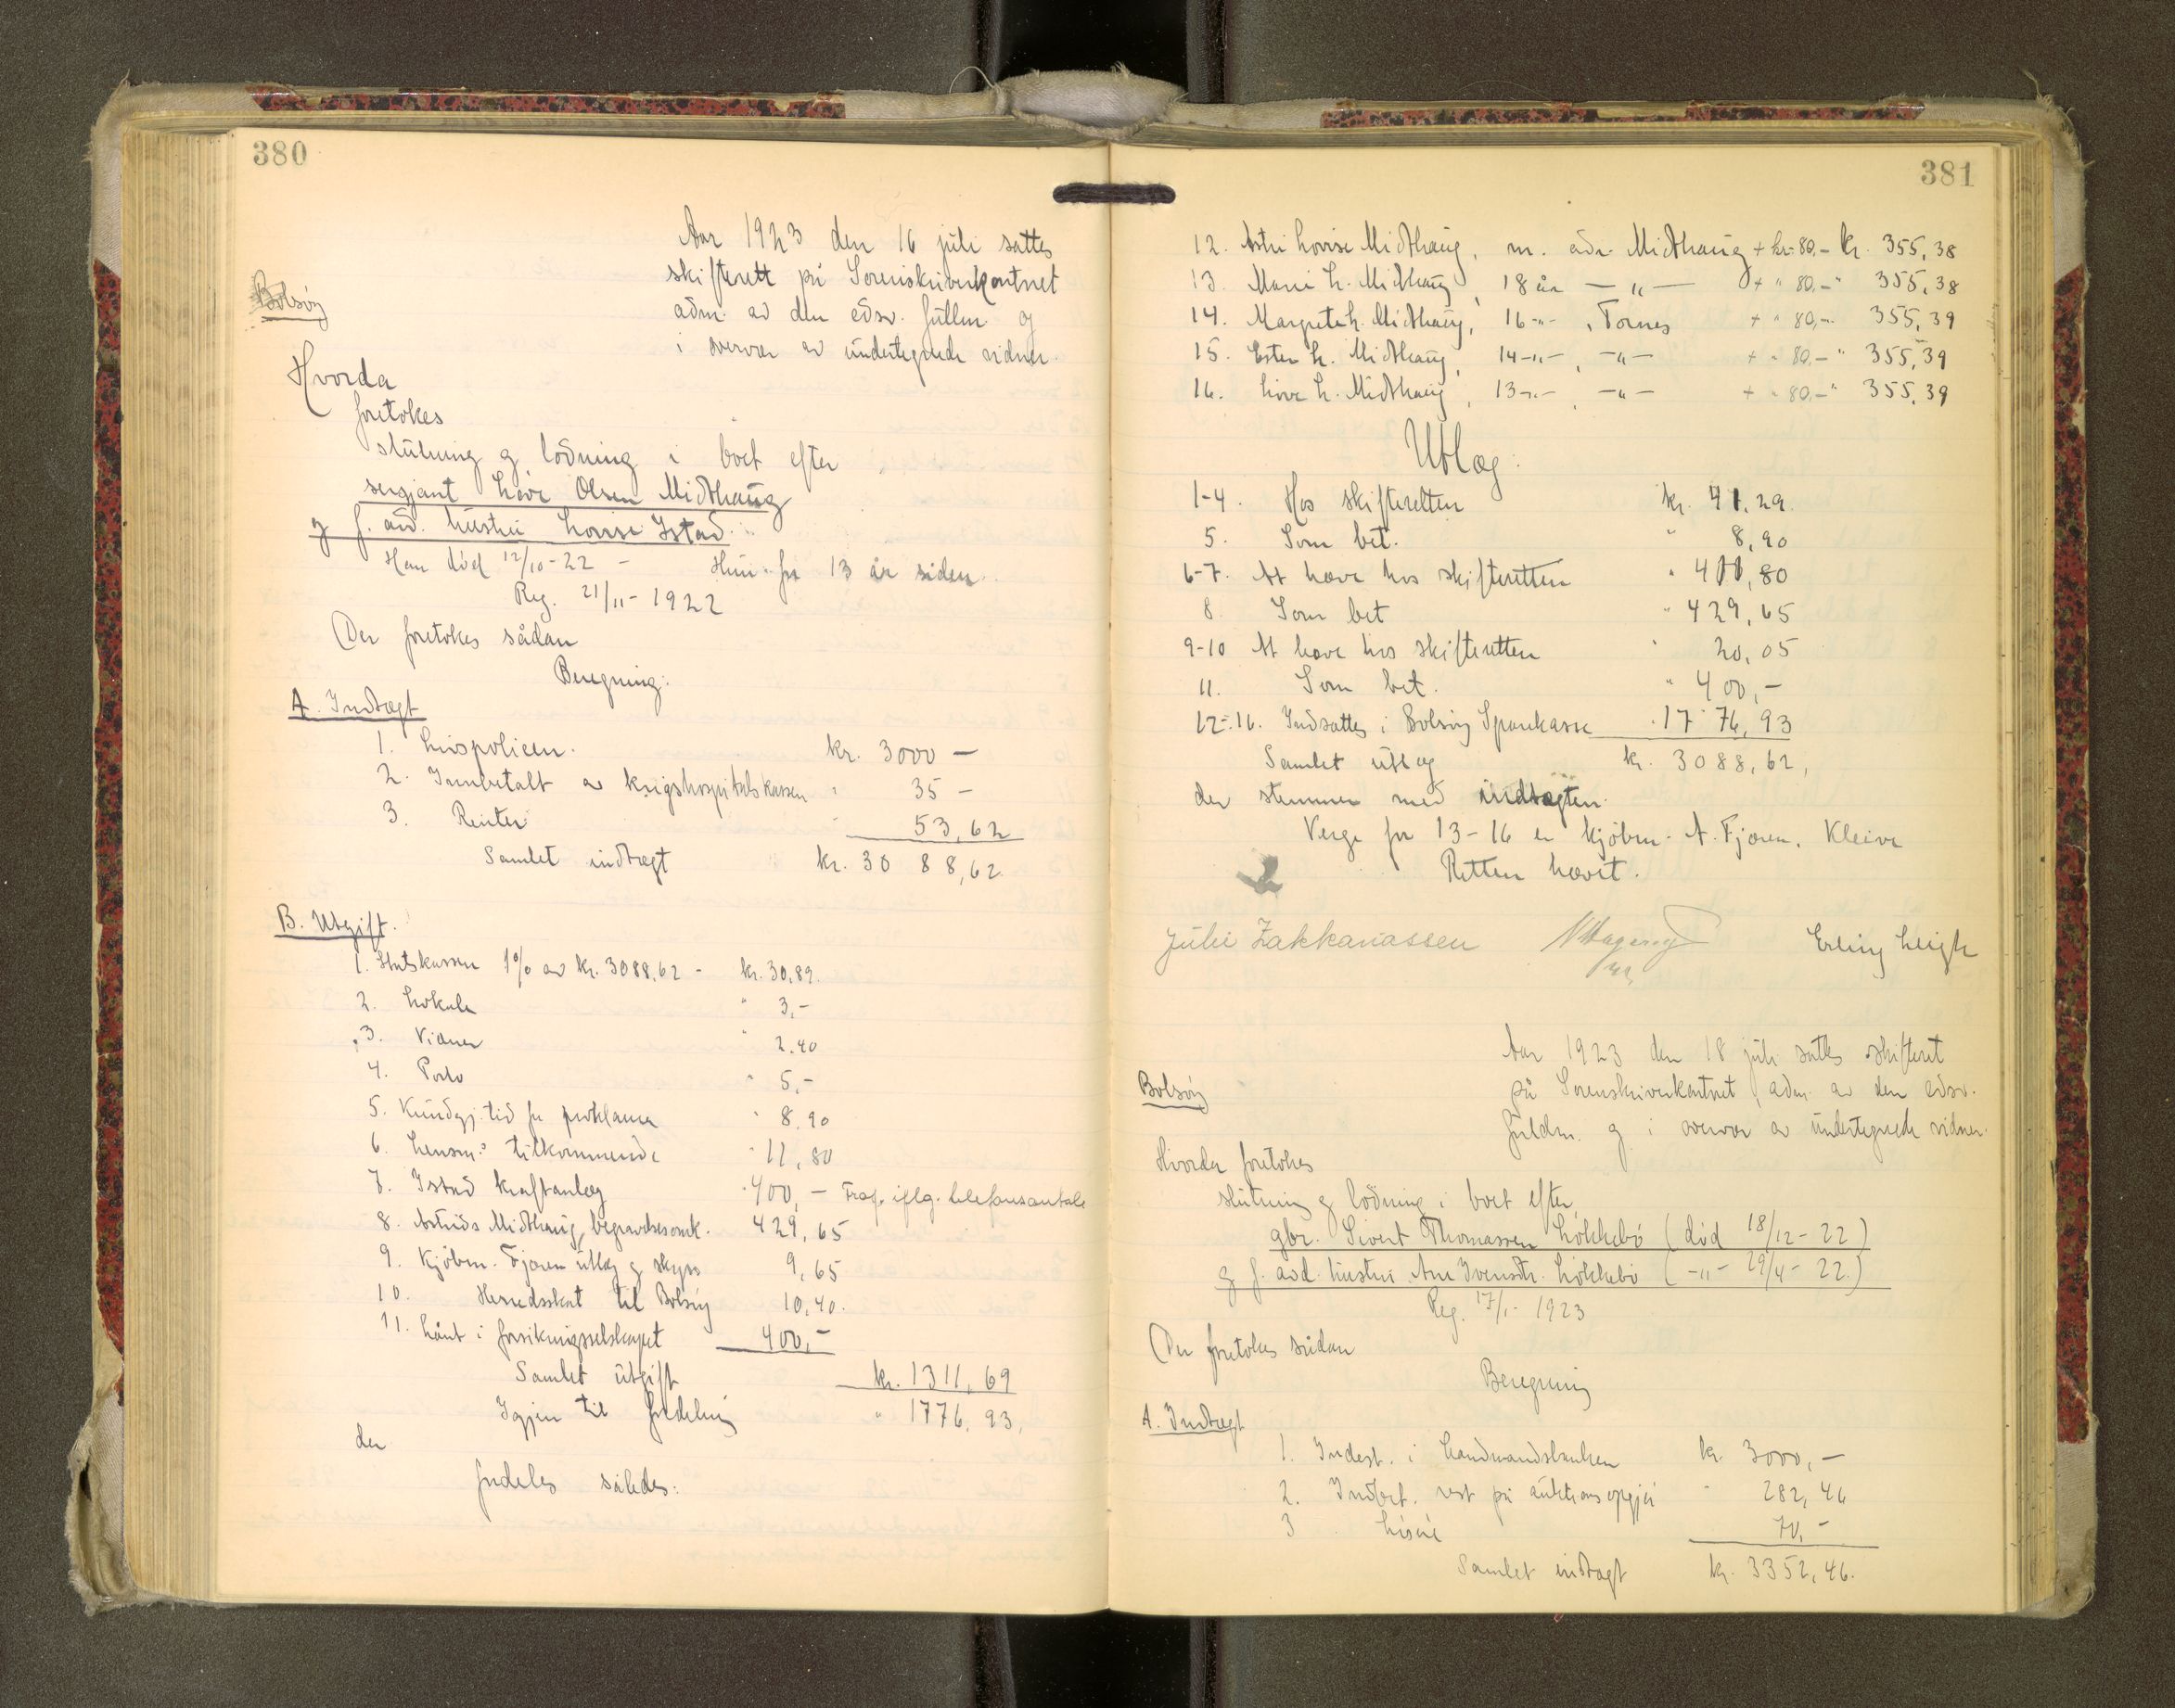 380
Aar 1923 den 16 juli sattes
skifterett på Sorenskriverkontret
adm. av den edsv. fullm. og
i overvær av undertegnede vidner.
Bolsøy
Hvorda
foretokes
slutning og lodning i boet efter
sergjant Love Olsen Midthaug
og f. avd. hustru Lovise Istad.
Han død 12/10-22 - Hun for 13 år siden.
Reg. 21/11-1922
Der foretokes sådan
Beregning:
A. Indtægt
1. Livspolicen. kr. 3000 —
2. Innbetalt av krigshospitalskassen " 35 —
3. Renter " 53,62
Samlet indtægt kr. 3088,62
B. Utgift.
1. Statskassen 1% av kr. 3088,62 - kr. 30,89.
2. Lokale " 3,-
3. Vidner " 2.40
4. Porto " 5,-
5. Kundgj. tid for proklama " 8,90
6. Lensm.s tilkommende " 11,80
7. Istad kraftanlæg " 400,- Fraf. iflg. telefonsamtale
8. Astrids Midthaug, begravelsesomk. 429,65
9. Kjøbm. Fjøren utlæg og skyss 9,65
10. Herredsskat til Bolsøy 10,40.
11. Lånt i forsikringsselskapet 400,-
Samlet utgift kr. 1311,69
Igjen til fordeling " 1776,93,
der
fordeles således:
381
12. Astri Lovise Midthaug, m. adr. Midthaug + kr. 80,- kr. 355,38
13. Marie L. Midthaug, 18 år — " — + " 80,- " 355,38
14. Margrete L. Midthaug, 16 -"- , Tornes + " 80,- " 355,39
15. Ester L. Midthaug, 14 -"- , -"- + " 80,- " 355,39
16. Love L. Midthaug, 13 -"- , -"- + " 80,- " 355,39
Utlæg:
1-4. Hos skifteretten kr. 41,29.
5. Som bet. " 8,90
6-7. At hæve hos skifteretten " 411,80
8. Som bet " 429,65
9-10 At hæve hos skifteretten " 20,05
11. Som bet. " 400,-
12-16. Indsattes i Bolsøy Sparekasse " 1776,93
Samlet utlæg kr. 3088,62,
der stemmer med indtægten.
Verge for 13-16 er kjøbm. A. Fjøren, Kleive
Retten hævet.
Julie Zakkariassen Erling Leigh
Aar 1923 den 18 juli sattes skifteret
på Sorenskriverkontret, adm. av den edsv.
fuldm. og i overvær av undertegnede vidner.
Bolsøy
Hvorda foretokes
slutning og lodning i boet efter
gbr. Sivert Thomassen Løkkebø (død 18/12-22)
og f. avd. hustru Ane Iversdtr. Løkkebø (-"- 29/4-22.)
Reg. 17/1-1923
Der foretokes sådan
Beregning
A. Indtægt
1. Indest. i Landmandsbanken kr. 3000,-
2. Indbet. rest på auktionsopgjør " 282,46
3. Løsøre 70,-
Samlet indtægt kr. 3352,46.